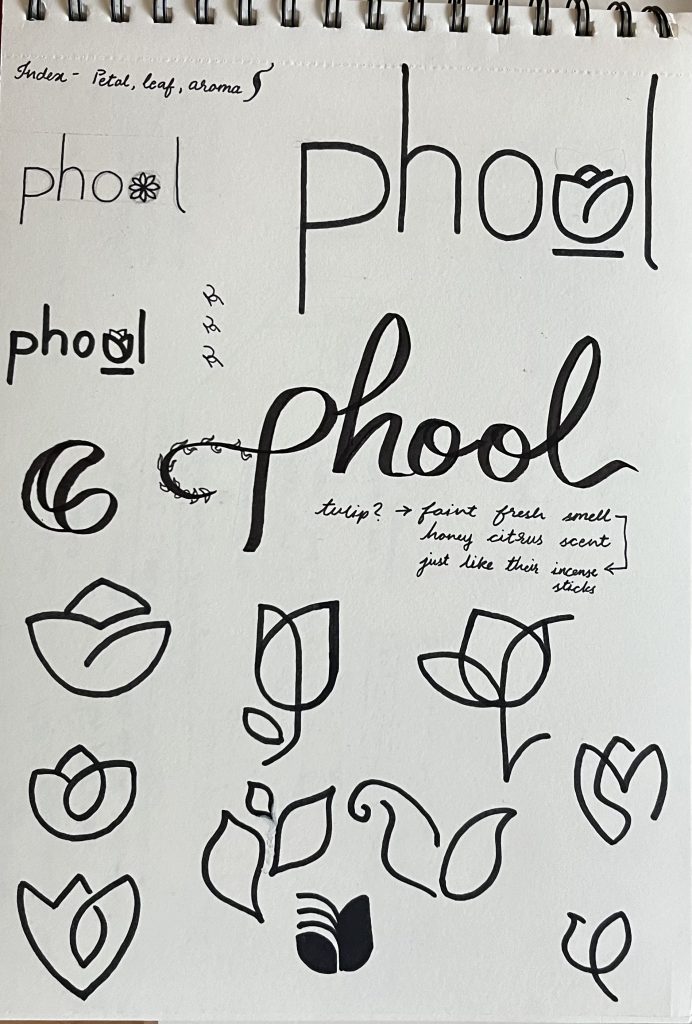 Index - Petal, leaf, aroma
phool
phool
phool
phool
tulip? → faint fresh smell
honey citrus scent
just like their incense
sticks